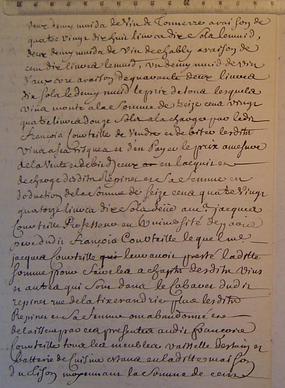 deux demy muids de vin de Tonnerre a raison de
quatre vingt dix huit livres dix sols le muid,
deux demy muids de vin de chably a raison de
cent dix livres le muid, un demy muid de vin
d'auxerre a raison de quarante deux livres
dix sols le demy muid le prix de tous lesquels
vins monte a la somme de seize cens vingt
quatre livres douze sols a la charge par led
François Courteille de vendre et debiter lesdits
vins et d'en payer le prix a mesure
de la vente et debit d'iceux en l'acquit et
decharge desdits Repiner et sa femme en
deduction de la somme de seize cens quatre vingt
quatorze livres dix sols deue au s. jacques
Courteille Professeur en l'université de paris
pere dudit François Courteille lequel
jacques Courteille leur avoit presté ladite
somme pour l'achapt desdits vins
et autres qui sont dans le cabaret dudit
repiner rue de la tixeranderie plus lesdits
Repiner et sa femme ont abandonné et
delaissé par ces presentes audit François
Courteille tous les meubles vaisselle d'estain et
batterie de cuisine estans en ladite maison
moyennant la somme de cent